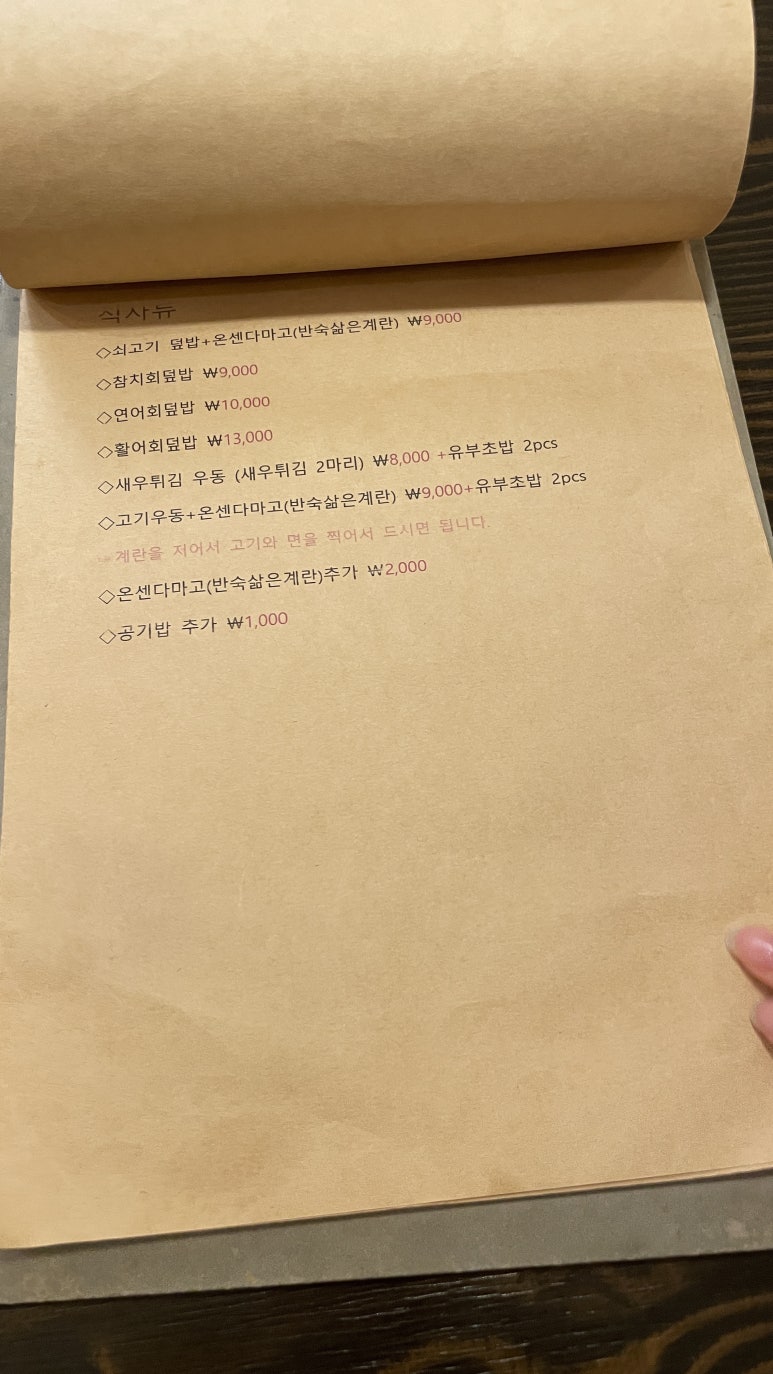 식사류
◇쇠고기 덮밥+온센다마고(반숙삶은계란) ₩9,000
◇참치회덮밥 ₩9,000
◇연어회덮밥 ₩10,000
◇활어회덮밥 ₩13,000
◇새우튀김 우동 (새우튀김 2마리) ₩8,000 +유부초밥 2pcs
◇고기우동+온센다마고(반숙삶은계란) ₩9,000+유부초밥 2pcs
계란을 저어서 고기와 면을 찍어서 드시면 됩니다.
◇온센다마고(반숙삶은계란)추가 ₩2,000
◇공기밥 추가 ₩1,000